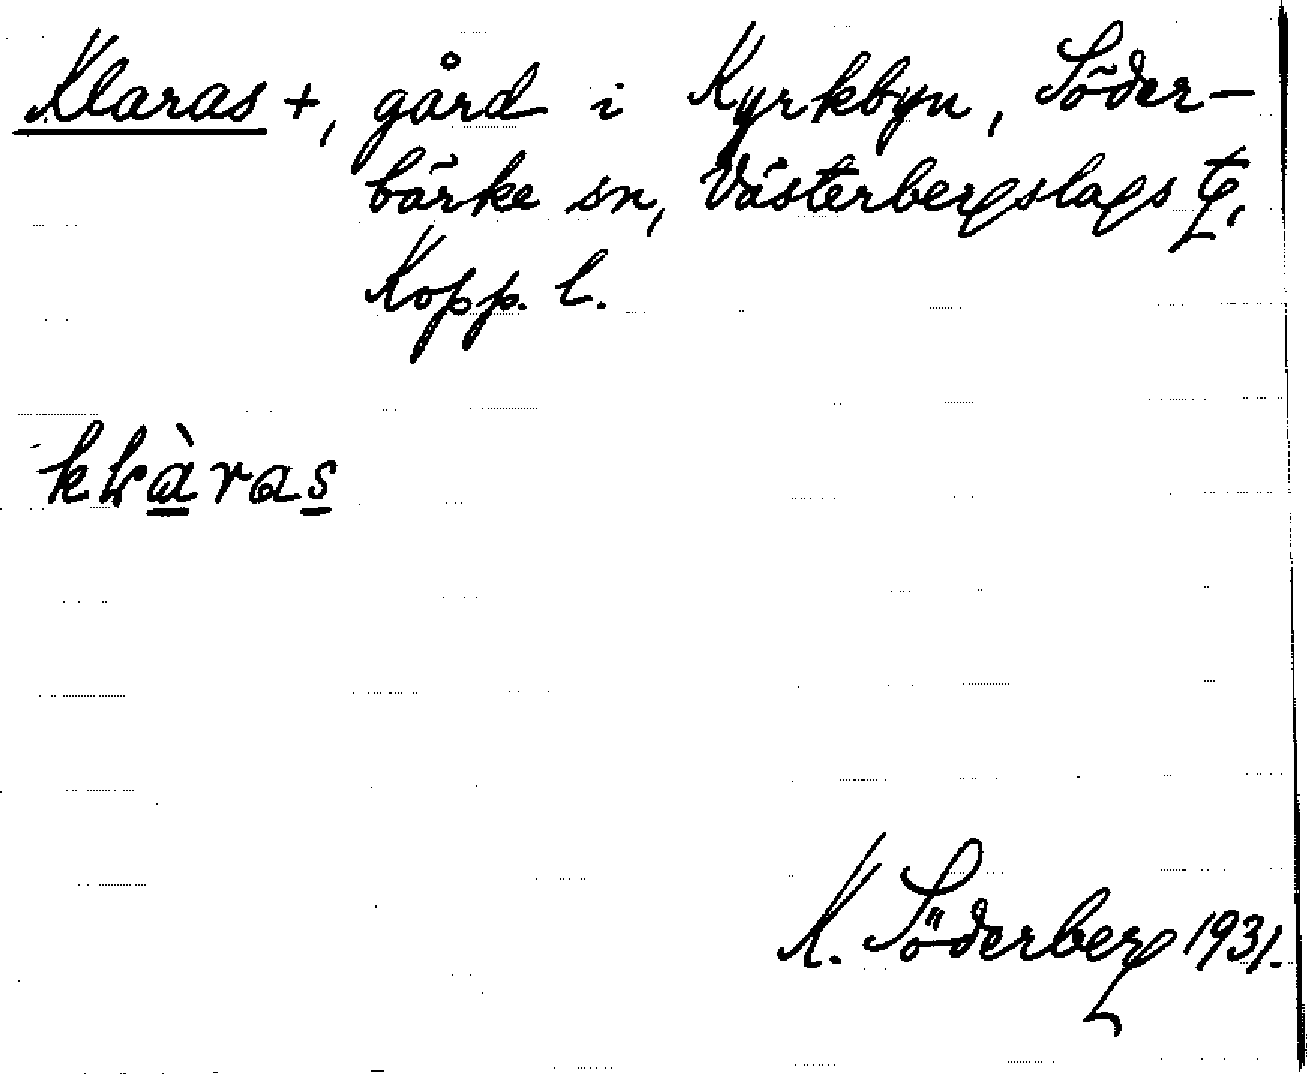 Klaras +, gård i Kyrkbyn, Söder-
bärke sn, Västerbergslags tg,
Kopp. l.
kɬàras
K. Söderberg 1931.